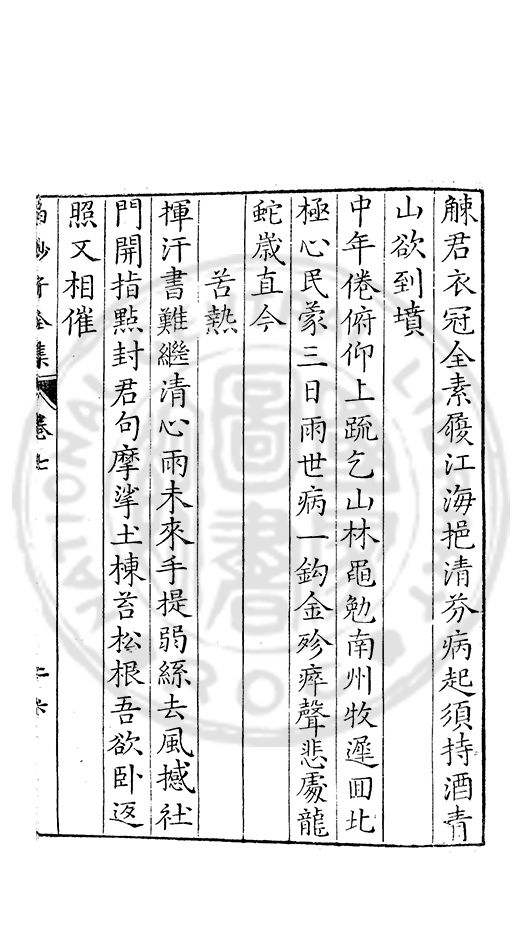 觫君衣冠全素履江海挹清芬病起須持酒青
山欲到墳
中年倦俯仰上䟽乞山林黽勉南州牧遲回北
極心民蒙三日雨世病一鈎金殄瘁聲悲處龍
蛇歳直今
苦熱
揮汗書難繼清心雨未來手提弱絲去風撼社
門開指點封君句摩挲土棟苔松根吾欲卧返
照又相催
全集 卷七